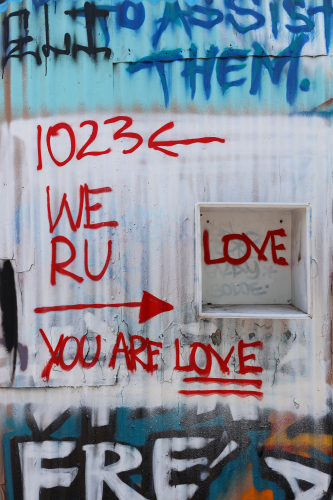 TO ASSIST
THEM.
1023
WE
RU
LOVE
YOU ARE LOVE
FRE